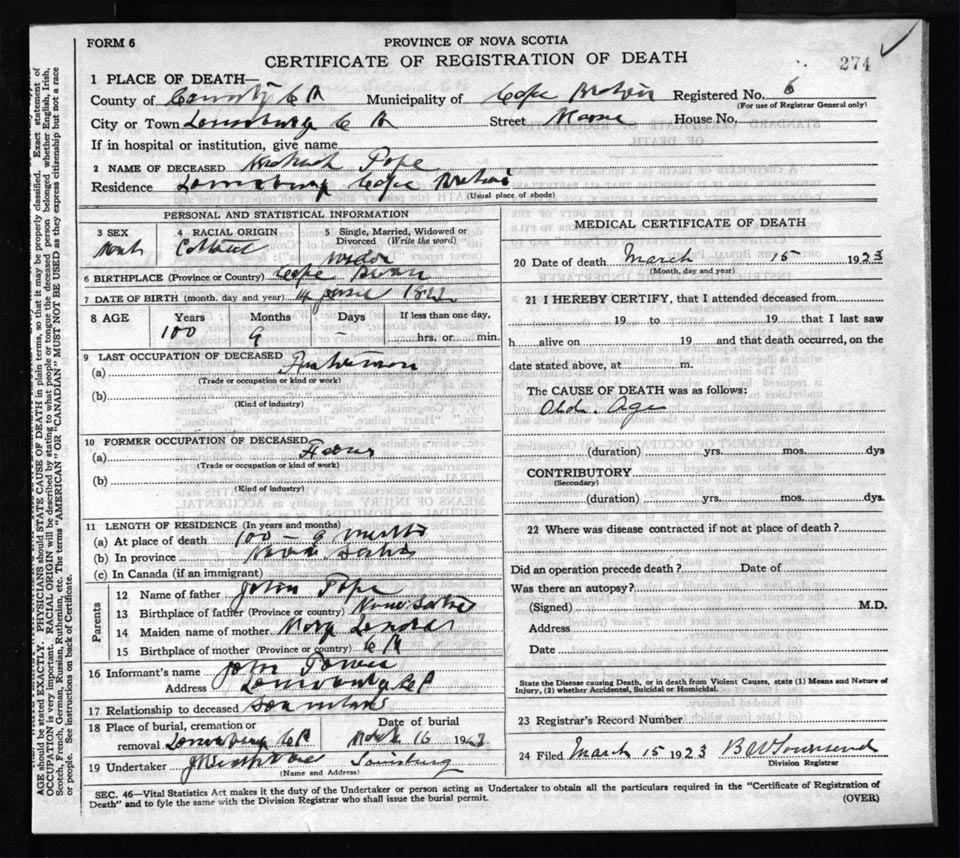 FORM 6
PROVINCE OF NOVA SCOTIA
CERTIFICATE OF REGISTRATION OF DEATH
274
1 PLACE OF DEATH—
County of County C B Municipality of Cape Breton Registered No. 6
(For use of Registrar General only)
City or Town Louisburg C B Street House No.
If in hospital or institution, give name
2 NAME OF DECEASED Pope
Residence Louisburg Cape Breton
(Usual place of abode)
PERSONAL AND STATISTICAL INFORMATION
3 SEX
4 RACIAL ORIGIN
5 Single, Married, Widowed or Divorced (Write the word)
6 BIRTHPLACE (Province or Country) Cape Breton
7 DATE OF BIRTH (month, day and year) 14 1822
8 AGE Years Months Days If less than one day,
100 9 – hrs. or min.
9 LAST OCCUPATION OF DECEASED
(a) Fisherman
(Trade or occupation or kind or work)
(b)
(Kind of industry)
10 FORMER OCCUPATION OF DECEASED
(a)
(Trade or occupation or kind of work)
(b)
(Kind of industry)
11 LENGTH OF RESIDENCE (In years and months)
(a) At place of death 100 – 9 months
(b) In province Nova Scotia
(c) In Canada (if an immigrant)
Parents
12 Name of father John Pope
13 Birthplace of father (Province or country) Nova Scotia
14 Maiden name of mother Mary
15 Birthplace of mother (Province or country) C B
16 Informant's name John
Address Louisburg C B
17 Relationship to deceased son in law
18 Place of burial, cremation or removal Louisburg C B
Date of burial March 16 1923
19 Undertaker Louisburg
(Name and Address)
MEDICAL CERTIFICATE OF DEATH
20 Date of death March 15 1923
(Month, day and year)
21 I HEREBY CERTIFY, that I attended deceased from
19 to 19 that I last saw
h alive on 19 and that death occurred, on the
date stated above, at m.
The CAUSE OF DEATH was as follows:
Old Age
(duration) yrs. mos. dys
CONTRIBUTORY
(Secondary)
(duration) yrs. mos. dys.
22 Where was disease contracted if not at place of death?
Did an operation precede death? Date of
Was there an autopsy?
(Signed) M.D.
Address
Date
State the Disease causing Death, or in death from Violent Causes, state (1) Means and Nature of
Injury, (2) whether Accidental, Suicidal or Homicidal.
23 Registrar's Record Number
24 Filed March 15 1923 B W Townsend
Division Registrar
SEC. 46—Vital Statistics Act makes it the duty of the Undertaker or person acting as Undertaker to obtain all the particulars required in the "Certificate of Registration of
Death" and to fyle the same with the Division Registrar who shall issue the burial permit.
(OVER)
AGE should be stated EXACTLY. PHYSICIANS should STATE CAUSE OF DEATH in plain terms, so that it may be properly classified. Exact statement of
OCCUPATION is very important. RACIAL ORIGIN will be described by stating to what people or tongue the deceased person belonged whether English, Irish,
Scotch, French, German, Russian, Ruthenian, etc. The terms "AMERICAN" OR "CANADIAN" MUST NOT BE USED as they express citizenship but not a race
or people. See instructions on back of Certificate.